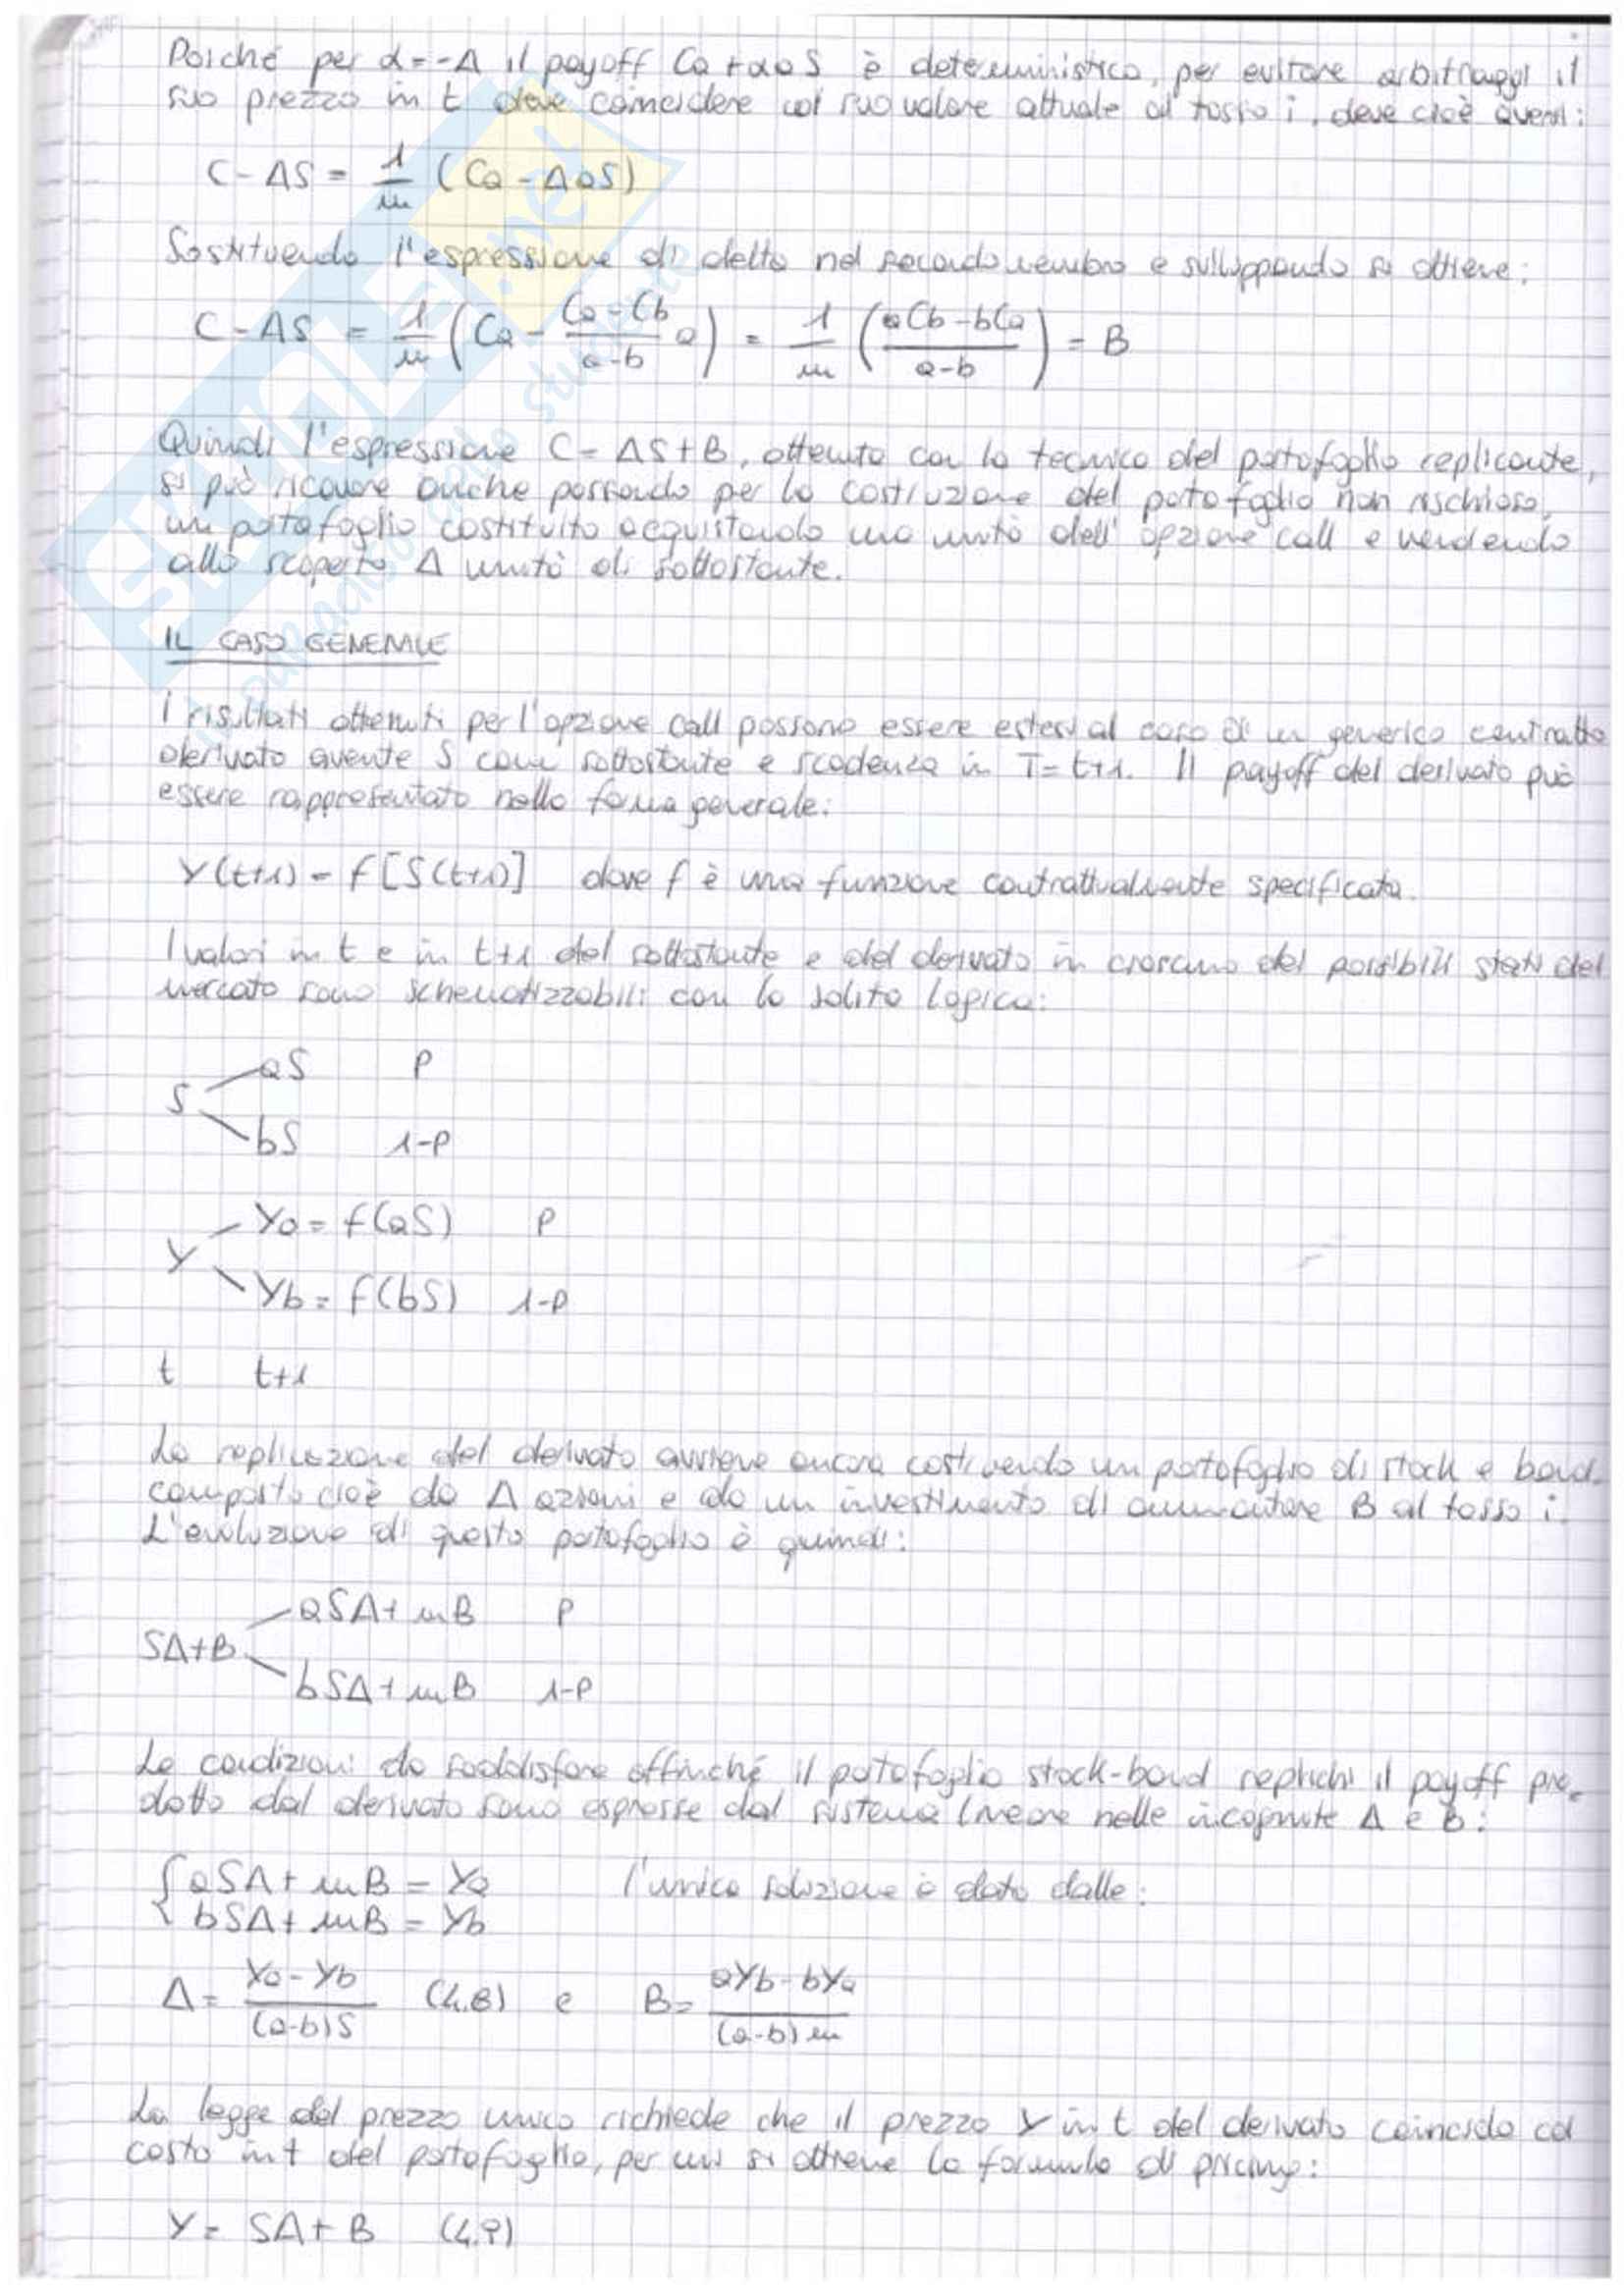 Poiché per α=-Δ il payoff Ca+αaS è deterministico, per evitare arbitraggi il
suo prezzo in t deve coincidere col suo valore attuale al tasso i, deve cioè aversi:
C-ΔS = 1/m (Ca-ΔaS)
Sostituendo l'espressione di delta nel secondo membro e sviluppando si ottiene:
C-ΔS = 1/m (Ca - (Ca-Cb)/(a-b) a) = 1/m ((aCb-bCa)/(a-b)) = B
Quindi l'espressione C=ΔS+B, ottenuta con la tecnica del portafoglio replicante,
si può ricavare anche passando per la costruzione del portafoglio non rischioso,
un portafoglio costituito acquistando una unità dell'opzione call e vendendo
allo scoperto Δ unità di sottostante.
IL CASO GENERALE
I risultati ottenuti per l'opzione call possono essere estesi al caso di un generico contratto
derivato avente S come sottostante e scadenza in T=t+1. Il payoff del derivato può
essere rappresentato nella forma generale:
Y(t+1) = f[S(t+1)] dove f è una funzione contrattualmente specificata.
I valori in t e in t+1 del sottostante e del derivato in ciascuno dei possibili stati del
mercato sono schematizzabili con la solita logica:
aS p
S
bS 1-p
Ya = f(aS) p
Y
Yb = f(bS) 1-p
t t+1
La replicazione del derivato avviene ancora costruendo un portafoglio di stock e bond
composto cioè da Δ azioni e da un investimento di ammontare B al tasso i.
L'evoluzione di questo portafoglio è quindi:
aSΔ+mB p
SΔ+B
bSΔ+mB 1-p
Le condizioni da soddisfare affinché il portafoglio stock-bond replichi il payoff pro-
dotto dal derivato sono espresse dal sistema lineare nelle incognite Δ e B:
{ aSΔ+mB = Ya l'unica soluzione è data dalle:
bSΔ+mB = Yb
Δ = (Ya-Yb)/((a-b)S) (4.8) e B = (aYb-bYa)/((a-b)m)
La legge del prezzo unico richiede che il prezzo Y in t del derivato coincida col
costo in t del portafoglio, per cui si ottiene la formula di pricing:
Y = SΔ+B (4.9)